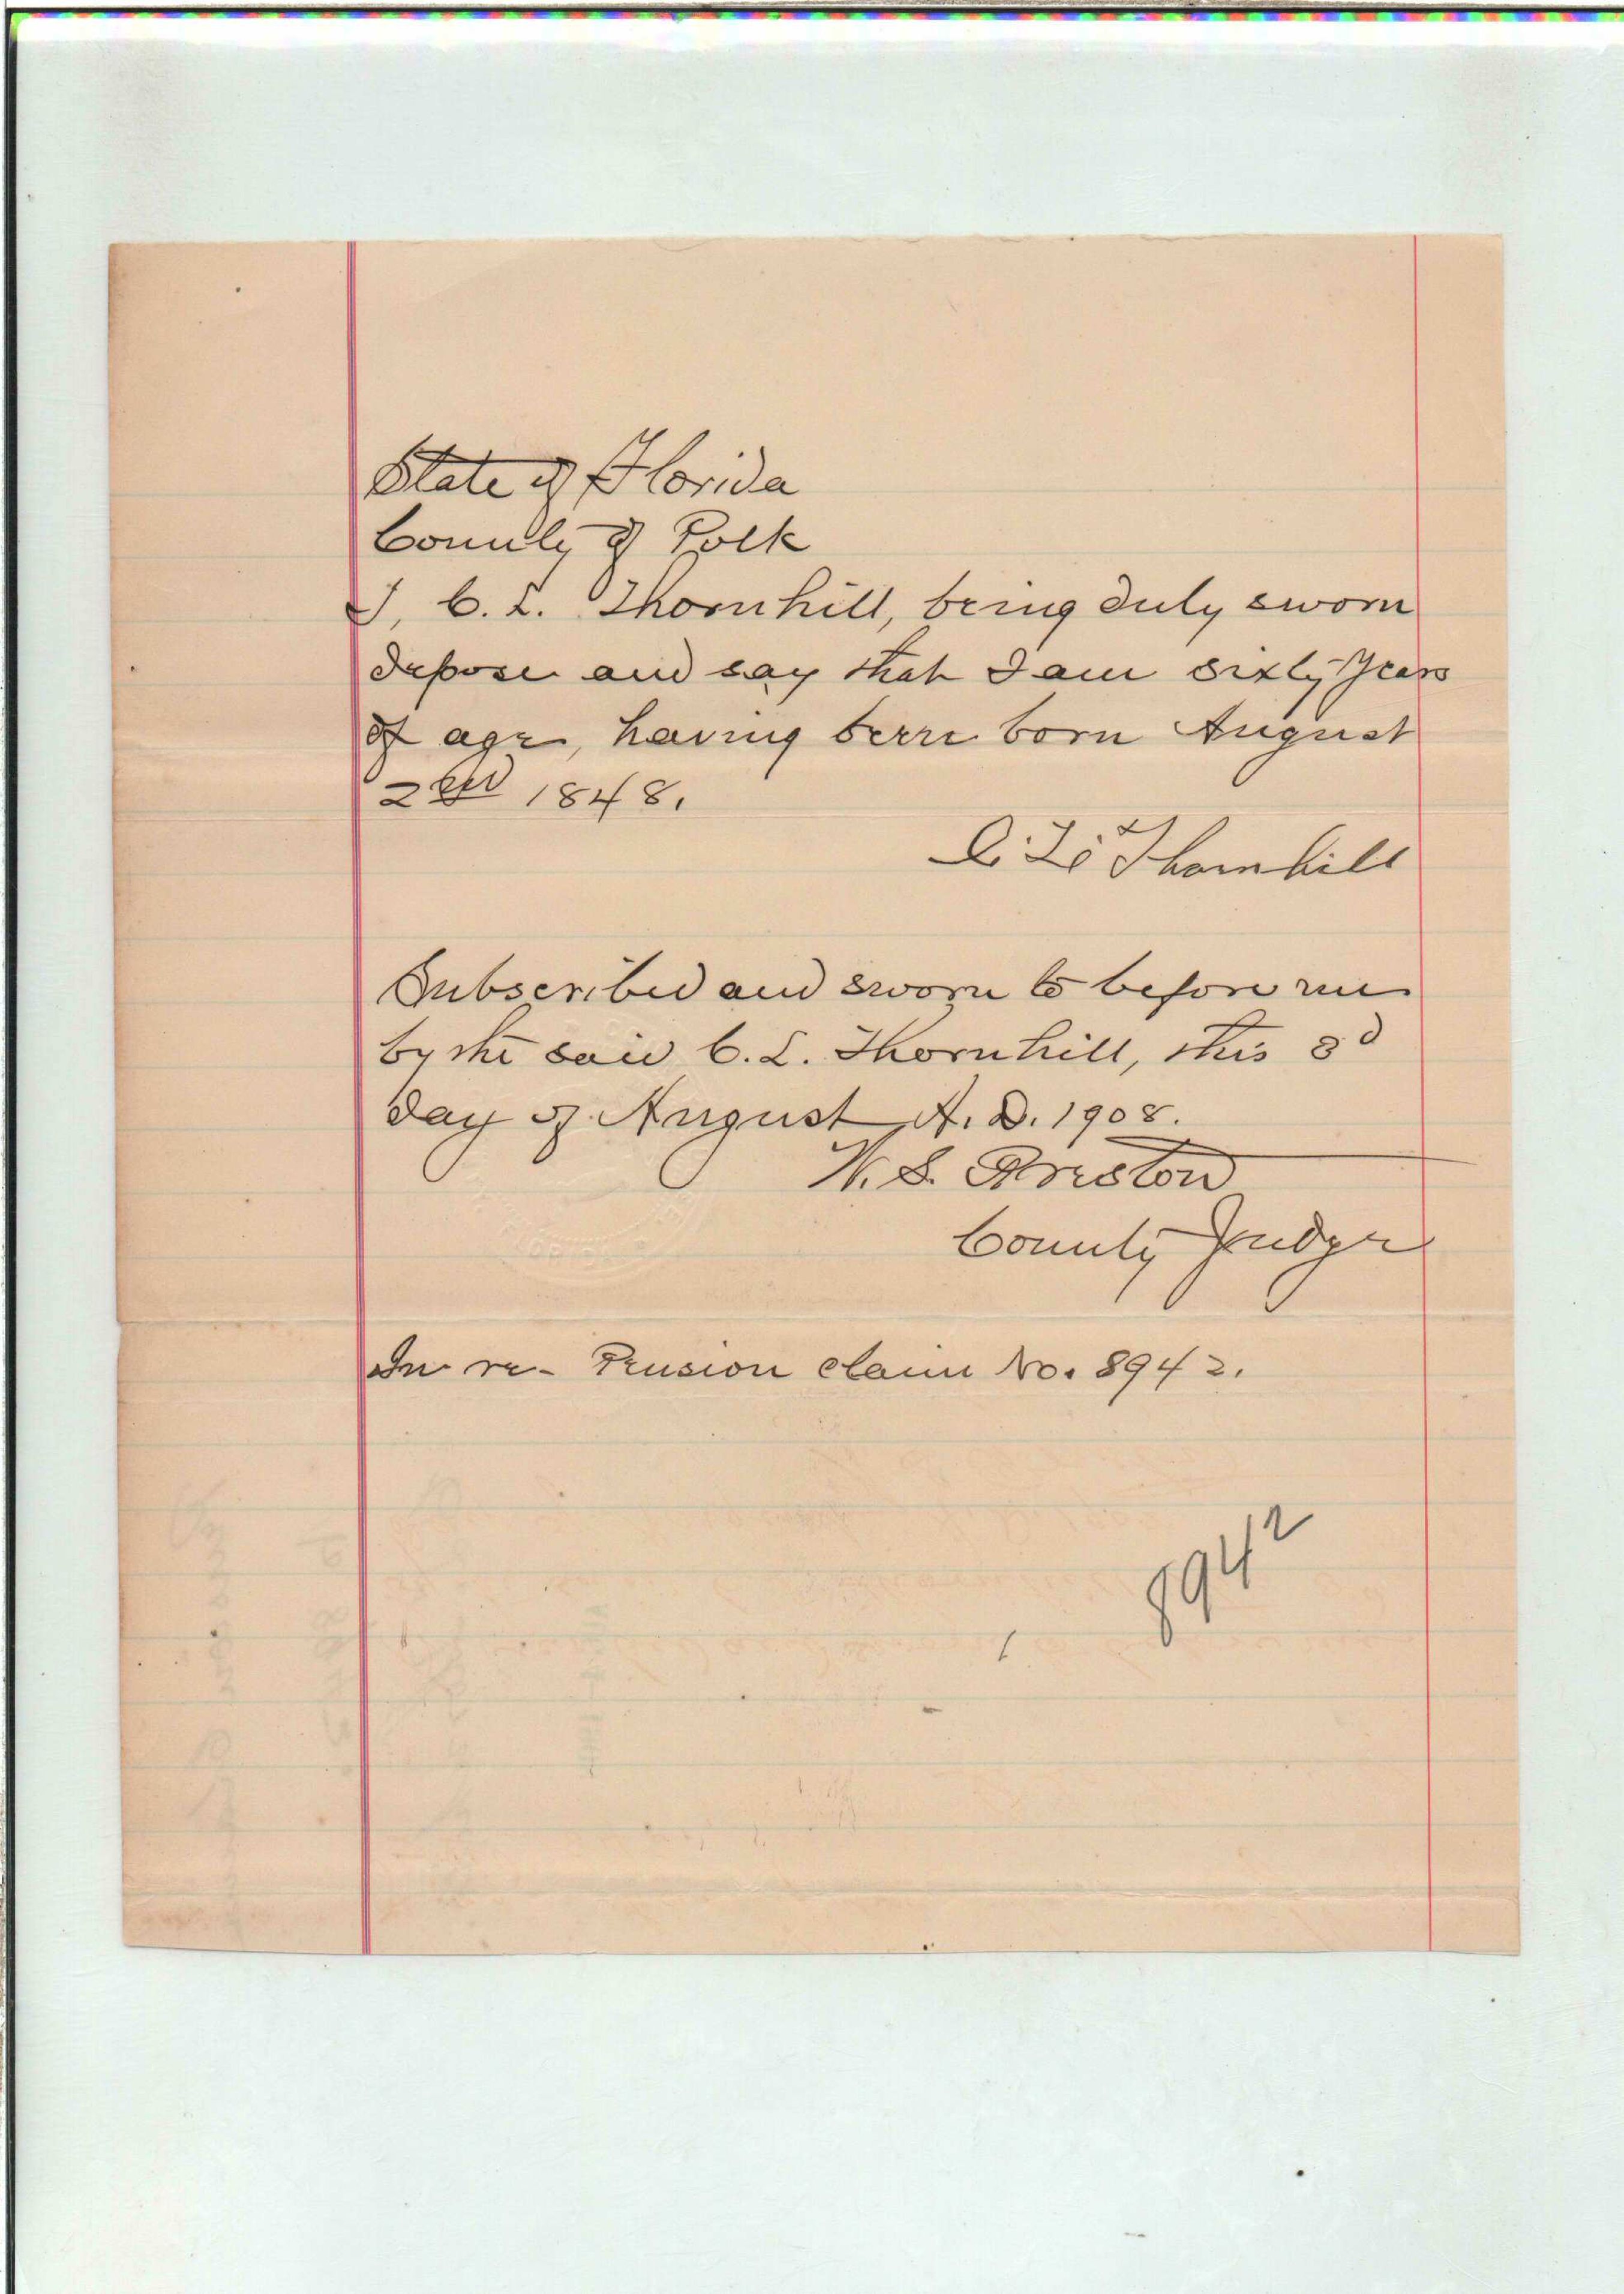 State of Florida
County of Polk
I, C. L. Thornhill, being duly sworn
depose and say that I am sixty years
of age, having been born August
2nd 1848.
C. L. Thornhill
Subscribed and sworn to before me
by the said C. L. Thornhill, this 3d
day of August A. D. 1908.
W. S. Preston
County Judge
In re- Pension claim No. 8942.
8942